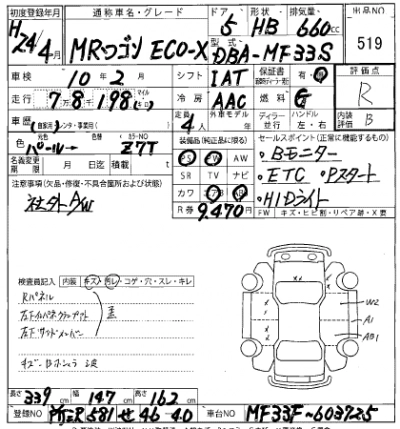 初度登録年月 通称車名・グレード ドア 形状 排気量 出品NO
H24/4月 MRワゴン ECO-X 5 HB 660cc 519
型式 DBA-MF33S
車検 10年2月 シフト IAT 保証書 有 評価点
走行 7 8 198 冷房 AAC 燃料 G R
車歴 自家用 レンタ・事業用 定員 4人 外車モデル ディーラー 並行 ハンドル 左・右 内装評価 B
色 パール カラーNO Z7T 装備品(純正品に限る) セールスポイント(正常に機能するもの)
名義変更期限 月 日迄 積載 PS PW AW ・Bモニター
注意事項(欠品・修復・不具合箇所および状態) SR TV ナビ ・ETC ・Pスタート
社外AW カワ エアB ・HIDライト
R券 9,470円 FW キズ・ヒビ割・リペア跡・X要
検査員記入 内装 キズ・汚レ・コゲ・穴・スレ・キレ
Rパネル
W2
A1
長さ 339 幅 147 高さ 162
登録NO 所沢 581 せ 46-40 車台NO MF33F-603725